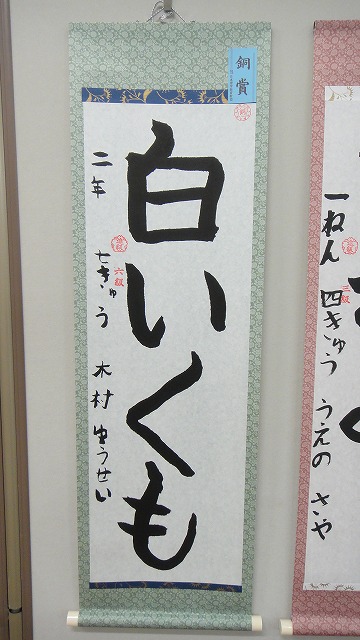 銅賞
白いくも
六級
二年 七きゅう 木村 ゆうせい
三級
一ねん 四きゅう うえの さや